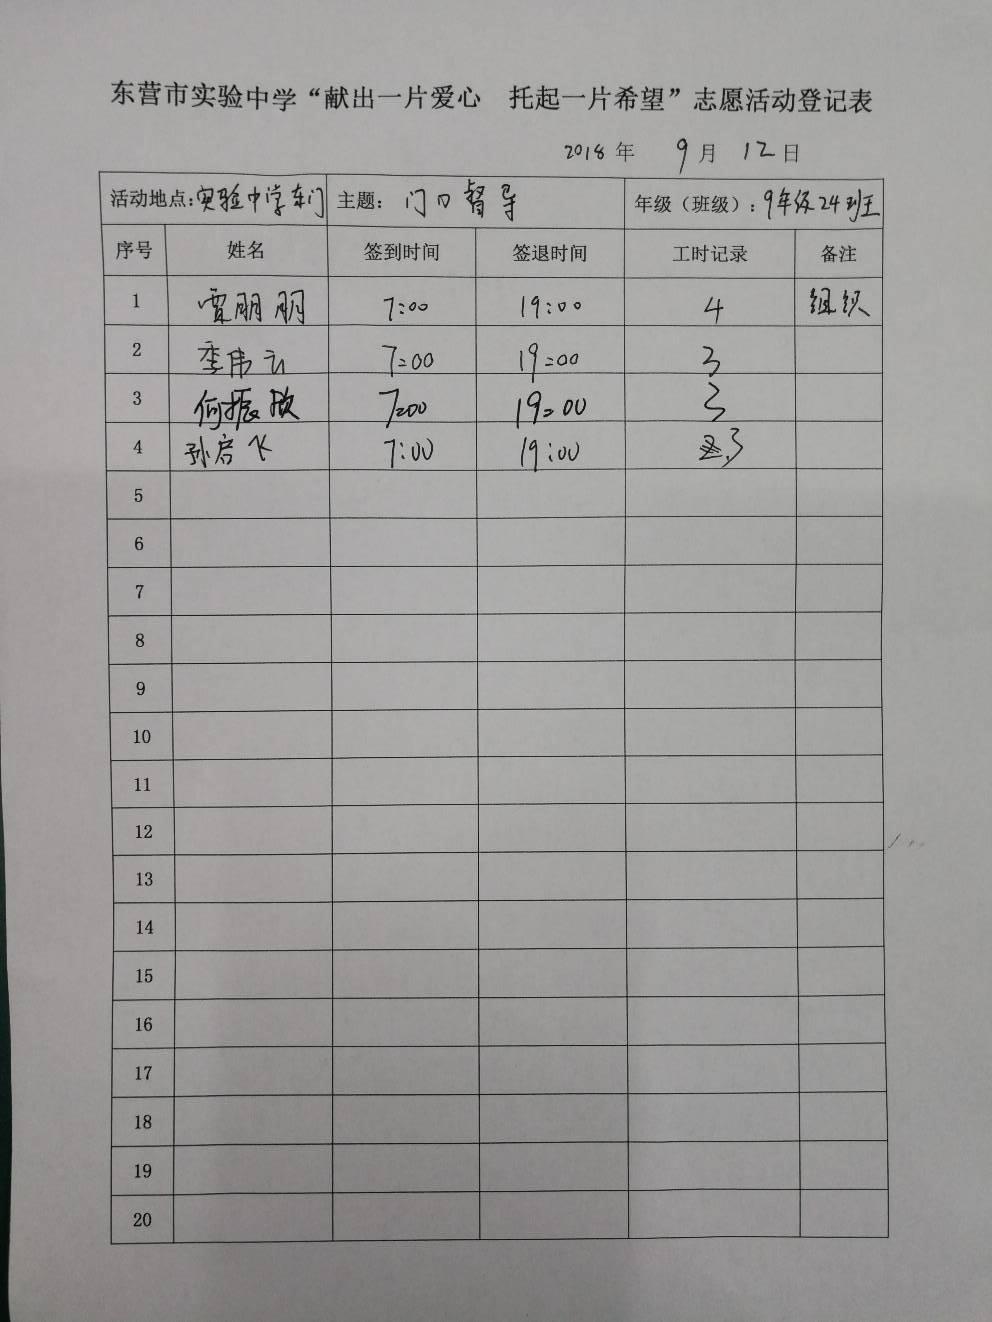 东营市实验中学“献出一片爱心 托起一片希望”志愿活动登记表
2018 年 9 月 12 日
活动地点:实验中学东门 主题: 门口督导 年级（班级）: 9年级24班
序号 姓名 签到时间 签退时间 工时记录 备注
1 贾朋朋 7:00 19:00 4 组织
2 李伟 7:00 19:00 3
3 何振 7:00 19:00 3
4 孙启飞 7:00 19:00 3
5
6
7
8
9
10
11
12
13
14
15
16
17
18
19
20